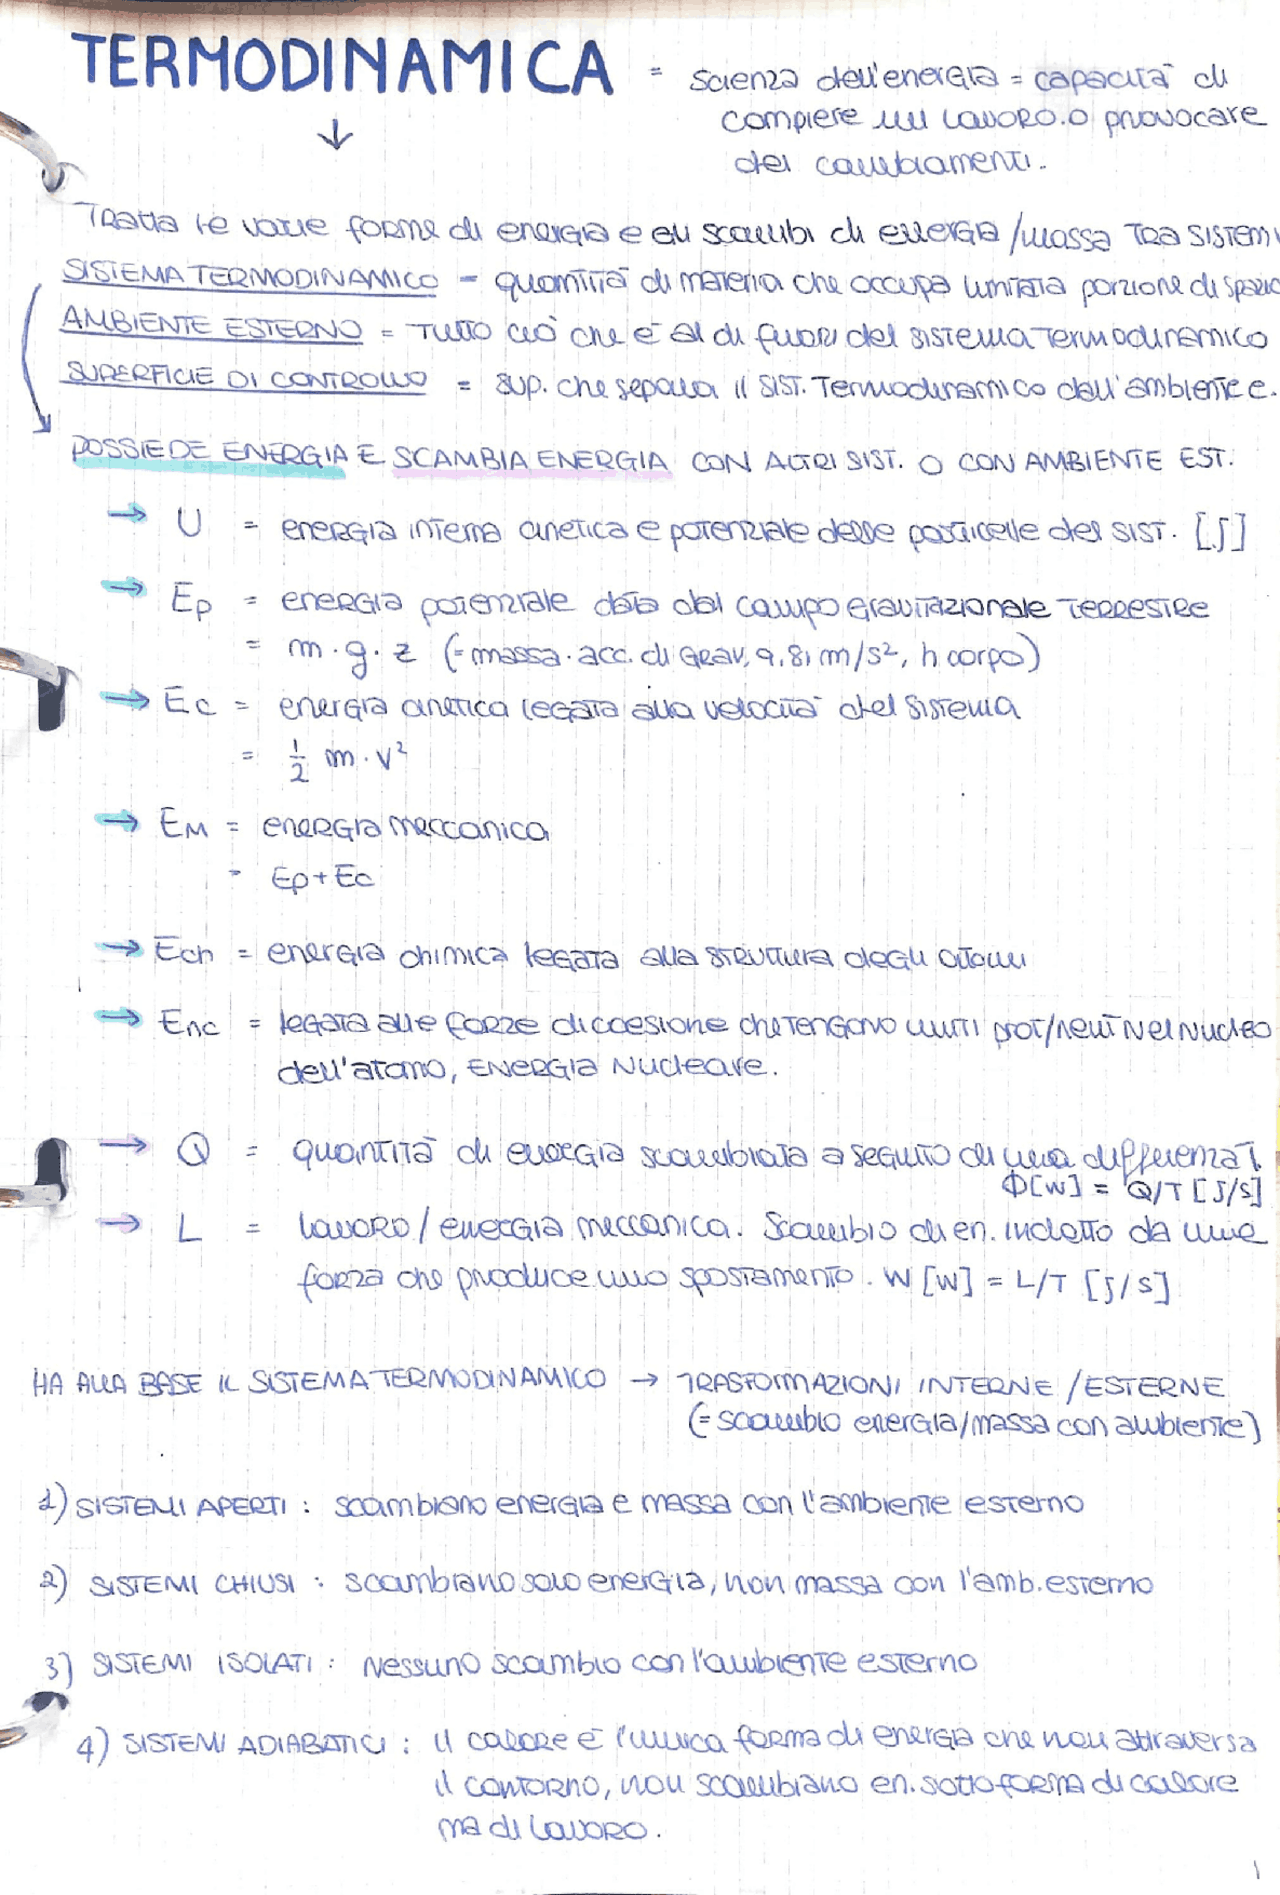 TERMODINAMICA = scienza dell'energia = capacità di
compiere un lavoro o provocare
dei cambiamenti.
↓
Tratta le varie forme di energia e gli scambi di energia/massa tra sistemi
SISTEMA TERMODINAMICO = quantità di materia che occupa limitata porzione di spazio
AMBIENTE ESTERNO = tutto ciò che è al di fuori del sistema termodinamico
SUPERFICIE DI CONTROLLO = sup. che separa il sist. termodinamico dall'ambiente e.
POSSIEDE ENERGIA E SCAMBIA ENERGIA CON ALTRI SIST. O CON AMBIENTE EST.
→ U = energia interna cinetica e potenziale delle particelle del sist. [J]
→ Ep = energia potenziale data dal campo gravitazionale terrestre
= m · g · z (= massa · acc. di grav, 9,81 m/s², h corpo)
→ Ec = energia cinetica legata alla velocità del sistema
= 1/2 m · v²
→ EM = energia meccanica
= Ep + Ec
→ Ech = energia chimica legata alla struttura degli atomi
→ Enc = legata alle forze di coesione che tengono uniti prot/neut nel nucleo
dell'atomo, energia nucleare.
→ Q = quantità di energia scambiata a seguito di una differenza T.
Φ[W] = Q/T [J/s]
→ L = lavoro / energia meccanica. Scambio di en. indotto da una
forza che produce uno spostamento. W [W] = L/T [J/s]
HA ALLA BASE IL SISTEMA TERMODINAMICO → TRASFORMAZIONI INTERNE / ESTERNE
(= scambio energia/massa con ambiente)
1) SISTEMI APERTI : scambiano energia e massa con l'ambiente esterno
2) SISTEMI CHIUSI : scambiano solo energia, non massa con l'amb. esterno
3) SISTEMI ISOLATI : nessuno scambio con l'ambiente esterno
4) SISTEMI ADIABATICI : il calore è l'unica forma di energia che non attraversa
il contorno, non scambiano en. sotto forma di calore
ma di lavoro.
1